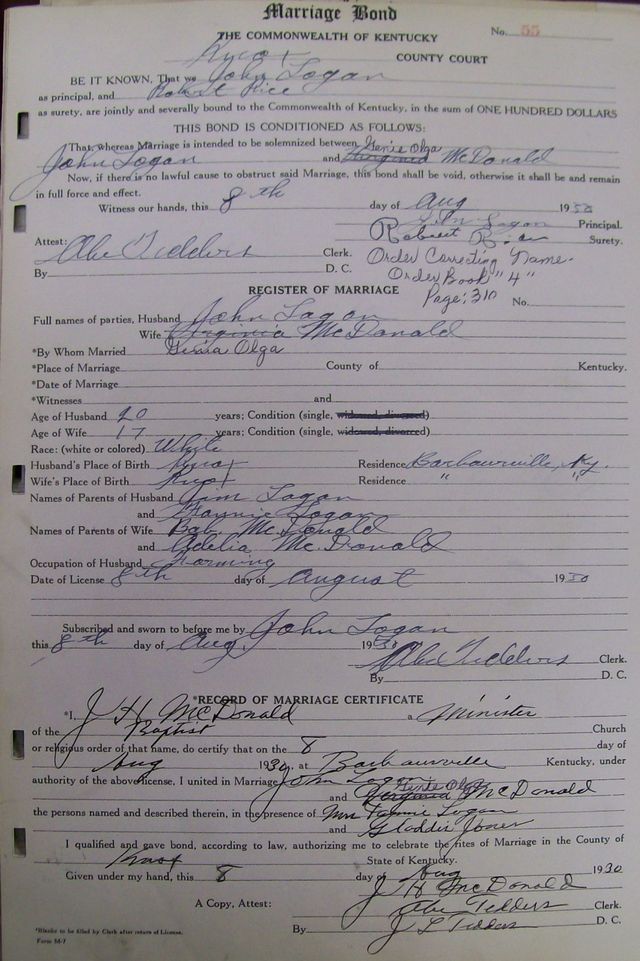 Marriage Bond
THE COMMONWEALTH OF KENTUCKY No. 55
Knox COUNTY COURT
BE IT KNOWN, That we John Logan
as principal, and Robert Rice
as surety, are jointly and severally bound to the Commonwealth of Kentucky, in the sum of ONE HUNDRED DOLLARS
THIS BOND IS CONDITIONED AS FOLLOWS:
That, whereas Marriage is intended to be solemnized between Olga
John Logan and Virginia McDonald
Now, if there is no lawful cause to obstruct said Marriage, this bond shall be void, otherwise it shall be and remain
in full force and effect.
Witness our hands, this 8th day of Aug 1930
John Logan Principal.
Robert Surety.
Attest: Abe Tedders Clerk. Order Correcting Name.
By D. C. Order Book "4"
REGISTER OF MARRIAGE Page; 310
No.
Full names of parties, Husband John Logan
Wife Virginia McDonald
*By Whom Married Olga
*Place of Marriage County of Kentucky.
*Date of Marriage
*Witnesses and
Age of Husband 20 years; Condition (single, widowed, divorced)
Age of Wife 17 years; Condition (single, widowed, divorced)
Race: (white or colored) White
Husband's Place of Birth Knox Residence Barbourville, Ky.
Wife's Place of Birth Knox Residence " "
Names of Parents of Husband Jim Logan
and Fannie Logan
Names of Parents of Wife Bob McDonald
and Adelia McDonald
Occupation of Husband Farming
Date of License 8th day of August 1930
Subscribed and sworn to before me by John Logan
this 8th day of Aug. 1930
Abe Tedders Clerk.
By D. C.
*RECORD OF MARRIAGE CERTIFICATE
*I, J H McDonald a Minister
of the Baptist Church
or religious order of that name, do certify that on the 8 day of
Aug 1930, at Barbourville Kentucky, under
authority of the above license, I united in Marriage John Logan Olga
and Virginia McDonald
the persons named and described therein, in the presence of Mrs Fannie Logan
and Gladdis Jones
I qualified and gave bond, according to law, authorizing me to celebrate the rites of Marriage in the County of
Knox State of Kentucky.
Given under my hand, this 8 day of Aug 1930
J H McDonald
A Copy, Attest: Abe Tedders Clerk.
By J L Tedders D. C.
*Blanks to be filled by Clerk after return of License.